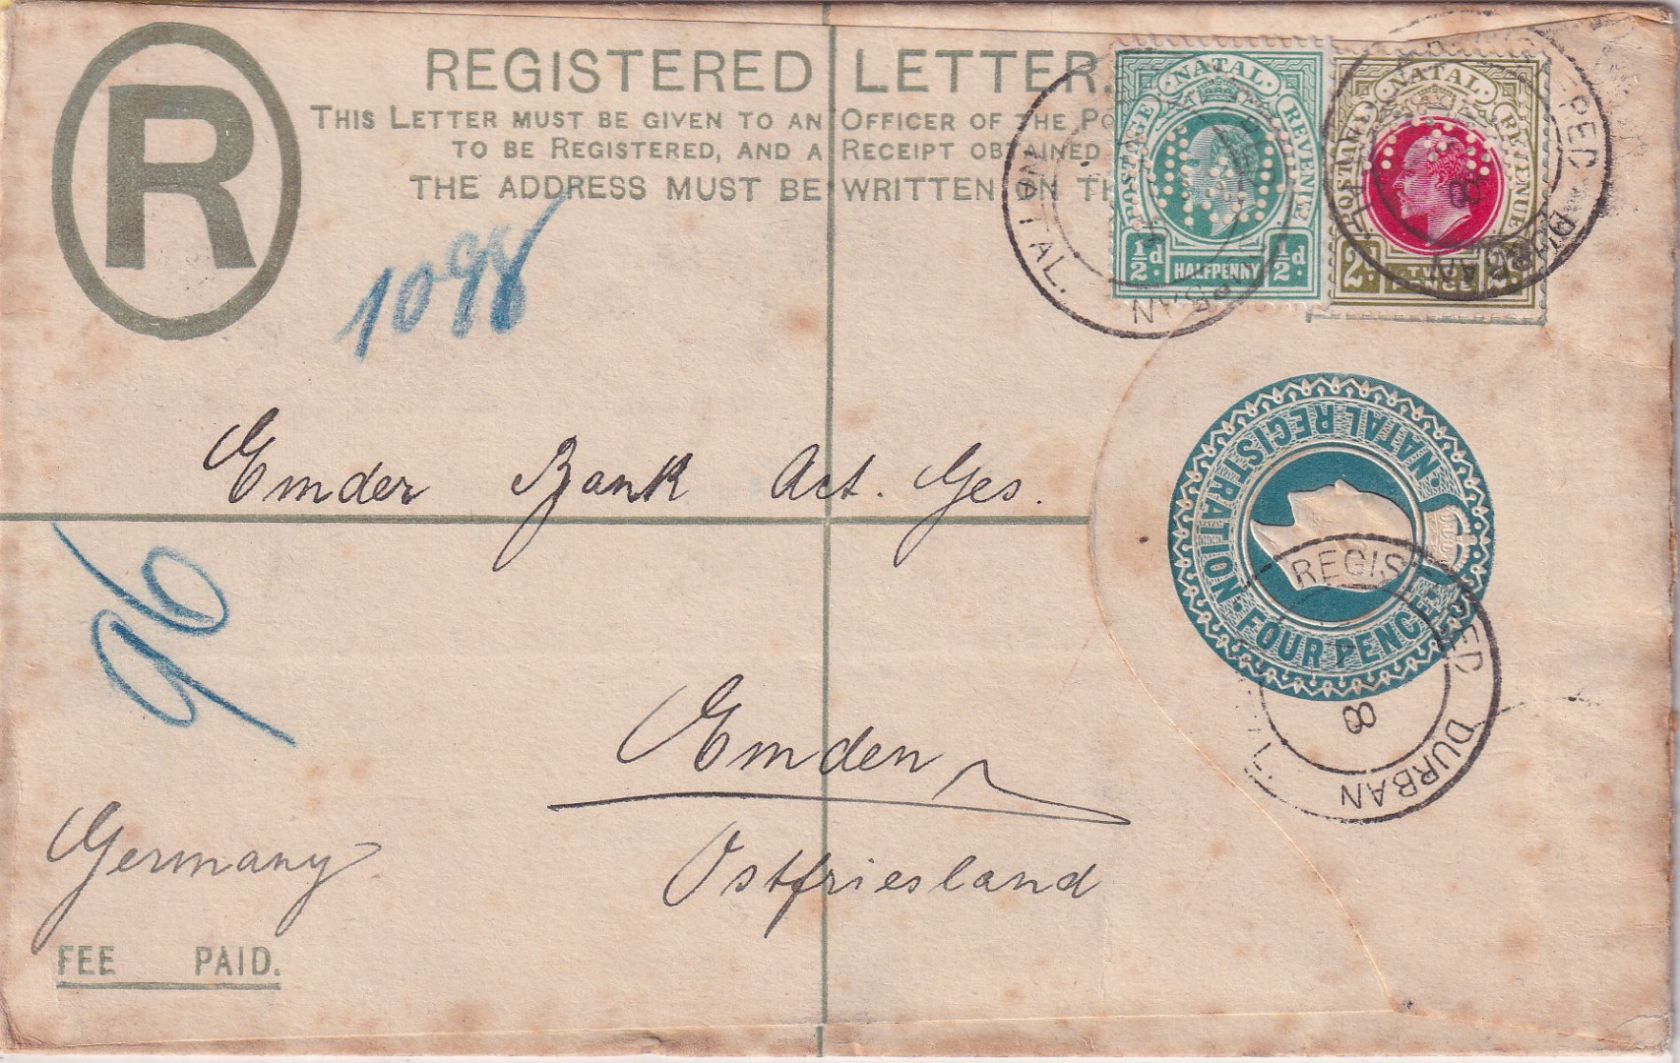 R
REGISTERED LETTER.
THIS LETTER MUST BE GIVEN TO AN OFFICER OF THE
TO BE REGISTERED, AND A RECEIPT OBTAINED
THE ADDRESS MUST BE WRITTEN ON
NATAL
POSTAGE
REVENUE
1/2d
HALFPENNY
1/2d
NATAL
POSTAGE
REVENUE
2d
TWO PENCE
DURBAN
8
1098
NATAL REGISTRATION
FOUR PENCE
REGISTERED DURBAN
8
Emder Bank Act. Ges.
96
Emden
Ostfriesland
Germany
FEE PAID.